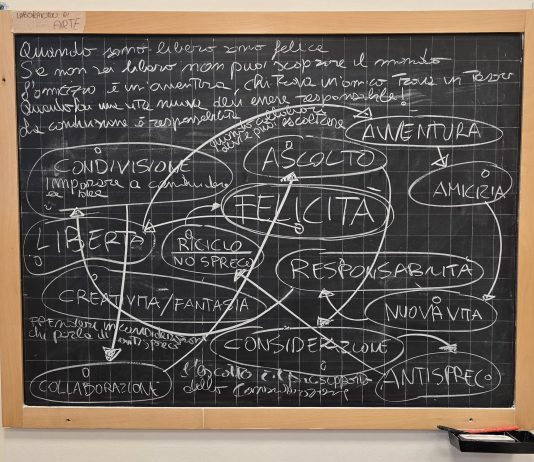 LABORATORIO DI
ARTE
Quando sono libero sono felice
Se non sei libero non puoi scoprire il mondo
L'amicizia è un'avventura, chi trova un amico trova un tesoro
Quando hai una vita nuova devi essere responsabile!
La condivisione è responsabilità
quando collabori
devi
ascoltare
AVVENTURA
CONDIVISIONE
imparare a condividere
le idee
ASCOLTO
AMICIZIA
FELICITÀ
LIBERTÀ
RICICLO
NO SPRECO
RESPONSABILITÀ
CREATIVITÀ/FANTASIA
NUOVA VITA
prendere in considerazione
chi parla di antispreco
CONSIDERAZIONE
COLLABORAZIONE
L'ascolto è il
della
ANTISPRECO